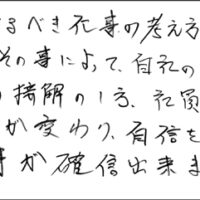 るべき仕事の考え方
その事によって、自社の
の接解の1方、社員
が変わり、自信を
等が確信出来ま